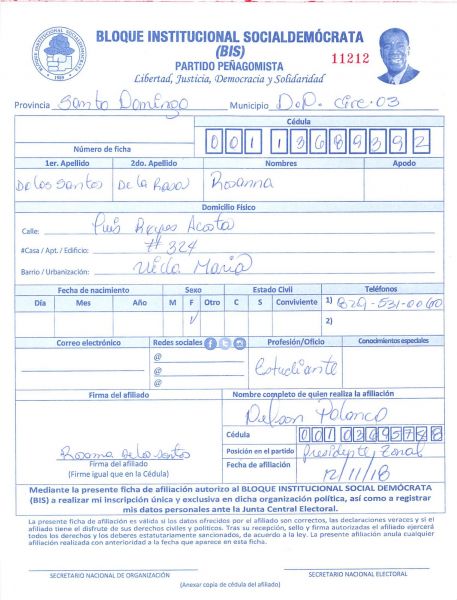 BLOQUE INSTITUCIONAL SOCIALDEMÓCRATA
(BIS)
PARTIDO PEÑAGOMISTA
Libertad, Justicia, Democracia y Solidaridad
11212
BLOQUE INSTITUCIONAL SOCIALDEMOCRATA
Provincia Santo Domingo Municipio D.P. Circ. 03
Cédula
Número de ficha 001 1368939 2
1er. Apellido 2do. Apellido Nombres Apodo
De los Santos De la Rosa Rosanna
Domicilio Físico
Calle: Luis Reyes Acosta
#Casa / Apt. / Edificio: # 324
Barrio / Urbanización: María
Fecha de nacimiento Sexo Estado Civil Teléfonos
Día Mes Año M F Otro C S Conviviente 1) 829-531-0060
2)
Correo electrónico Redes sociales Profesión/Oficio Conocimientos especiales
@
@
@
Estudiante
Firma del afiliado Nombre completo de quien realiza la afiliación
Polanco
Cédula 001 0369578 8
Posición en el partido Presidente Zonal
Fecha de afiliación 12/11/18
Rosanna de los santos
Firma del afiliado
(Firma igual que en la Cédula)
Mediante la presente ficha de afiliación autorizo al BLOQUE INSTITUCIONAL SOCIAL DEMÓCRATA
(BIS) a realizar mi inscripción única y exclusiva en dicha organización política, así como a registrar
mis datos personales ante la Junta Central Electoral.
La presente afiliación es válida si los datos ofrecidos por el afiliado son correctos, las declaraciones veraces y si el
afiliado tiene el disfrute de sus derechos civiles y políticos. Tras su recepción, sello y firma autorizadas el afiliado ejercerá
todos los derechos y los deberes estatutariamente sancionados, de acuerdo a la ley. La presente afiliación anula cualquier
afiliación realizada con anterioridad a la fecha que aparece en esta ficha.
SECRETARIO NACIONAL DE ORGANIZACIÓN SECRETARIO NACIONAL ELECTORAL
(Anexar copia de cédula del afiliado)